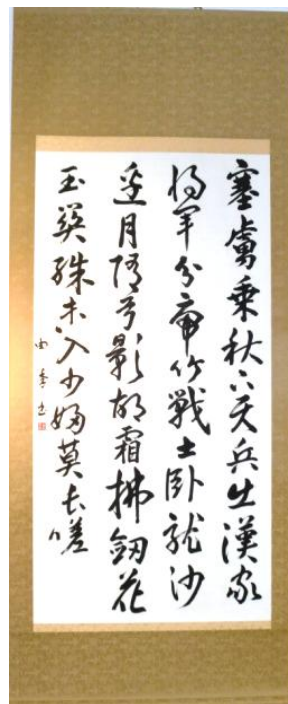 塞虜乘秋下天兵出漢家
将軍分虎竹戰士臥龍沙
邊月隨弓影胡霜拂劒花
玉關殊未入少婦莫長嗟